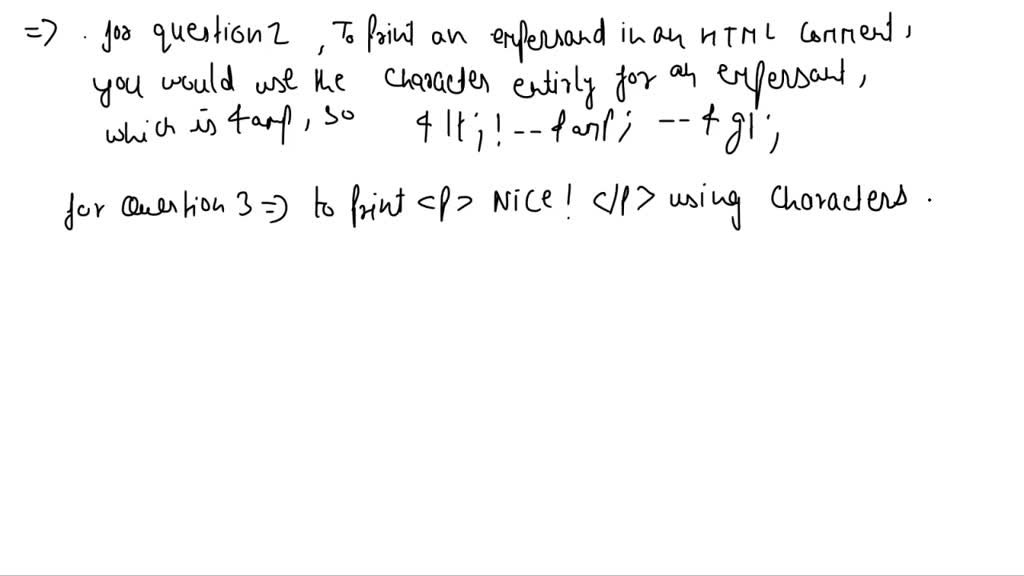 => . for question 2 , To Print an empersand in an HTML comment ,
you would use the character entirly for an empersant ,
which is &amp , so &lt ; ! -- &amp ; -- &gt ;
for Question 3 => to Print <P> NiCe ! </P> using Characters .